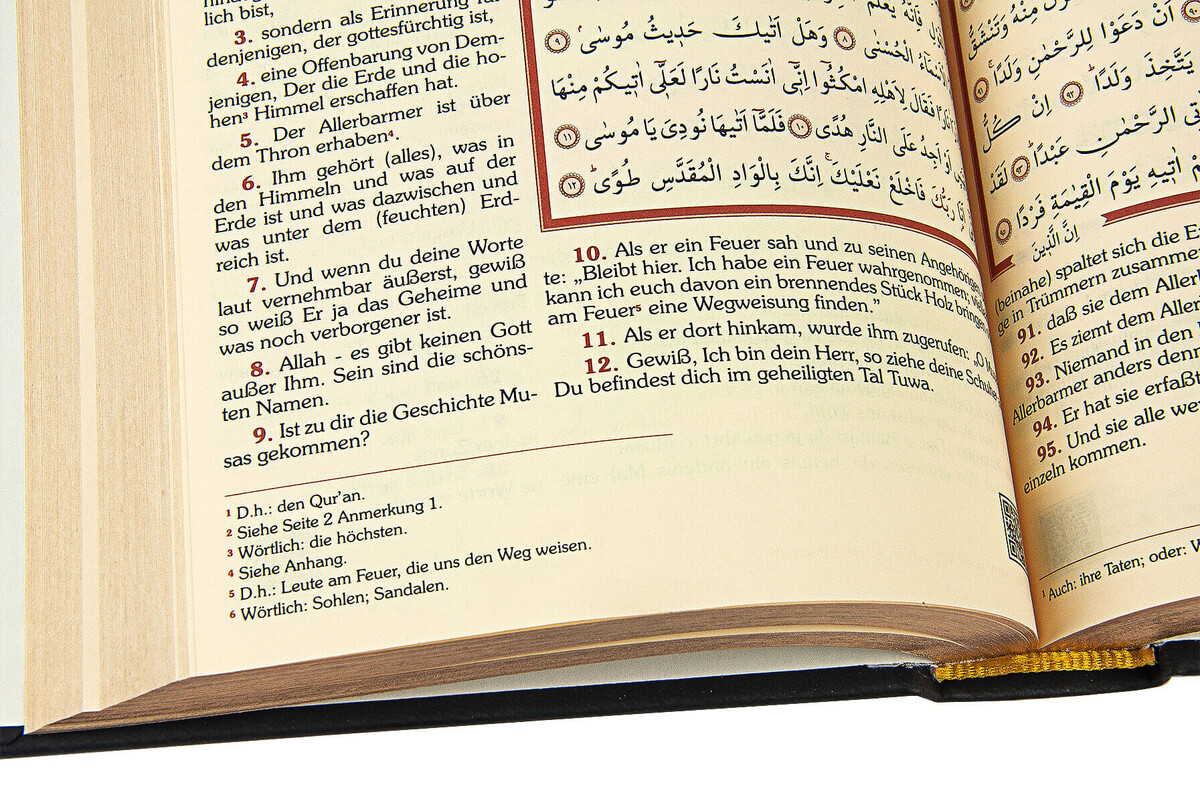 lich bist,
3. sondern als Erinnerung für
denjenigen, der gottesfürchtig ist,
4. eine Offenbarung von Dem-
jenigen, Der die Erde und die ho-
hen³ Himmel erschaffen hat.
5. Der Allerbarmer ist über
dem Thron erhaben⁴.
6. Ihm gehört (alles), was in
den Himmeln und was auf der
Erde ist und was dazwischen und
was unter dem (feuchten) Erd-
reich ist.
7. Und wenn du deine Worte
laut vernehmbar äußerst, gewiß
so weiß Er ja das Geheime und
was noch verborgener ist.
8. Allah - es gibt keinen Gott
außer Ihm. Sein sind die schöns-
ten Namen.
9. Ist zu dir die Geschichte Mu-
sas gekommen?
فَاِنَّهُ يَعْلَمُ
الْاَسْمَٓاءُ الْحُسْنٰى ٨ وَهَلْ اَتٰيكَ حَد۪يثُ مُوسٰىۢ ٩
نَارًا فَقَالَ لِاَهْلِهِ امْكُثُٓوا اِنّ۪ٓي اٰنَسْتُ نَارًا لَعَلّ۪ٓي اٰت۪يكُمْ مِنْهَا
اَوْ اَجِدُ عَلَى النَّارِ هُدًى ١٠ فَلَمَّٓا اَتٰيهَا نُودِيَ يَا مُوسٰى ١١
رَبُّكَ فَاخْلَعْ نَعْلَيْكَۚ اِنَّكَ بِالْوَادِ الْمُقَدَّسِ طُوًىۜ ١٢
10. Als er ein Feuer sah und zu seinen Angehörigen
te: „Bleibt hier. Ich habe ein Feuer wahrgenommen;
kann ich euch davon ein brennendes Stück Holz bringen
am Feuer⁵ eine Wegweisung finden.”
11. Als er dort hinkam, wurde ihm zugerufen: „O
12. Gewiß, Ich bin dein Herr, so ziehe deine Schuhe
Du befindest dich im geheiligten Tal Tuwa.
¹ D.h.: den Qur’an.
² Siehe Seite 2 Anmerkung 1.
³ Wörtlich: die höchsten.
⁴ Siehe Anhang.
⁵ D.h.: Leute am Feuer, die uns den Weg weisen.
⁶ Wörtlich: Sohlen; Sandalen.
مِنْهُ وَتَنْشَقُّ
اَنْ دَعَوْا لِلرَّحْمٰنِ وَلَدًاۚ ٩١
يَتَّخِذَ وَلَدًاۜ ٩٢ اِنْ كُلُّ
الرَّحْمٰنِ عَبْدًاۜ ٩٣ لَقَدْ
اٰت۪يهِ يَوْمَ الْقِيٰمَةِ فَرْدًا ٩٥
اِنَّ الَّذ۪ينَ
(beinahe) spaltet sich die
ge in Trümmern zusammen
91. daß sie dem
92. Es ziemt dem
93. Niemand in den
Allerbarmer anders
94. Er hat sie erfaßt
95. Und sie alle
einzeln kommen.
¹ Auch: ihre Taten; oder: